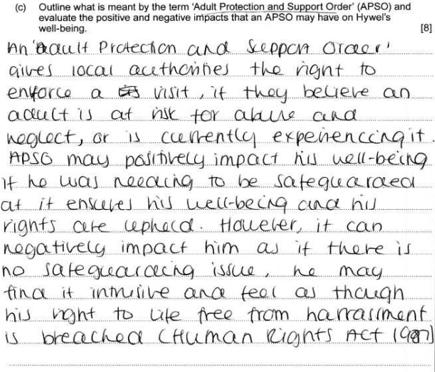 (c) Outline what is meant by the term 'Adult Protection and Support Order' (APSO) and
evaluate the positive and negative impacts that an APSO may have on Hywel's
well-being. [8]
An 'Adult Protection and Support Order'
gives local authorities the right to
enforce a visit, if they believe an
adult is at risk for abuse and
neglect, or is currently experiencing it.
APSO may positively impact his well-being
if he was needing to be safeguarded
at it ensures his well-being and his
rights are upheld. However, it can
negatively impact him as if there is
no safeguarding issue, he may
find it intrusive and feel as though
his right to life free from harrassment
is breached (Human Rights Act